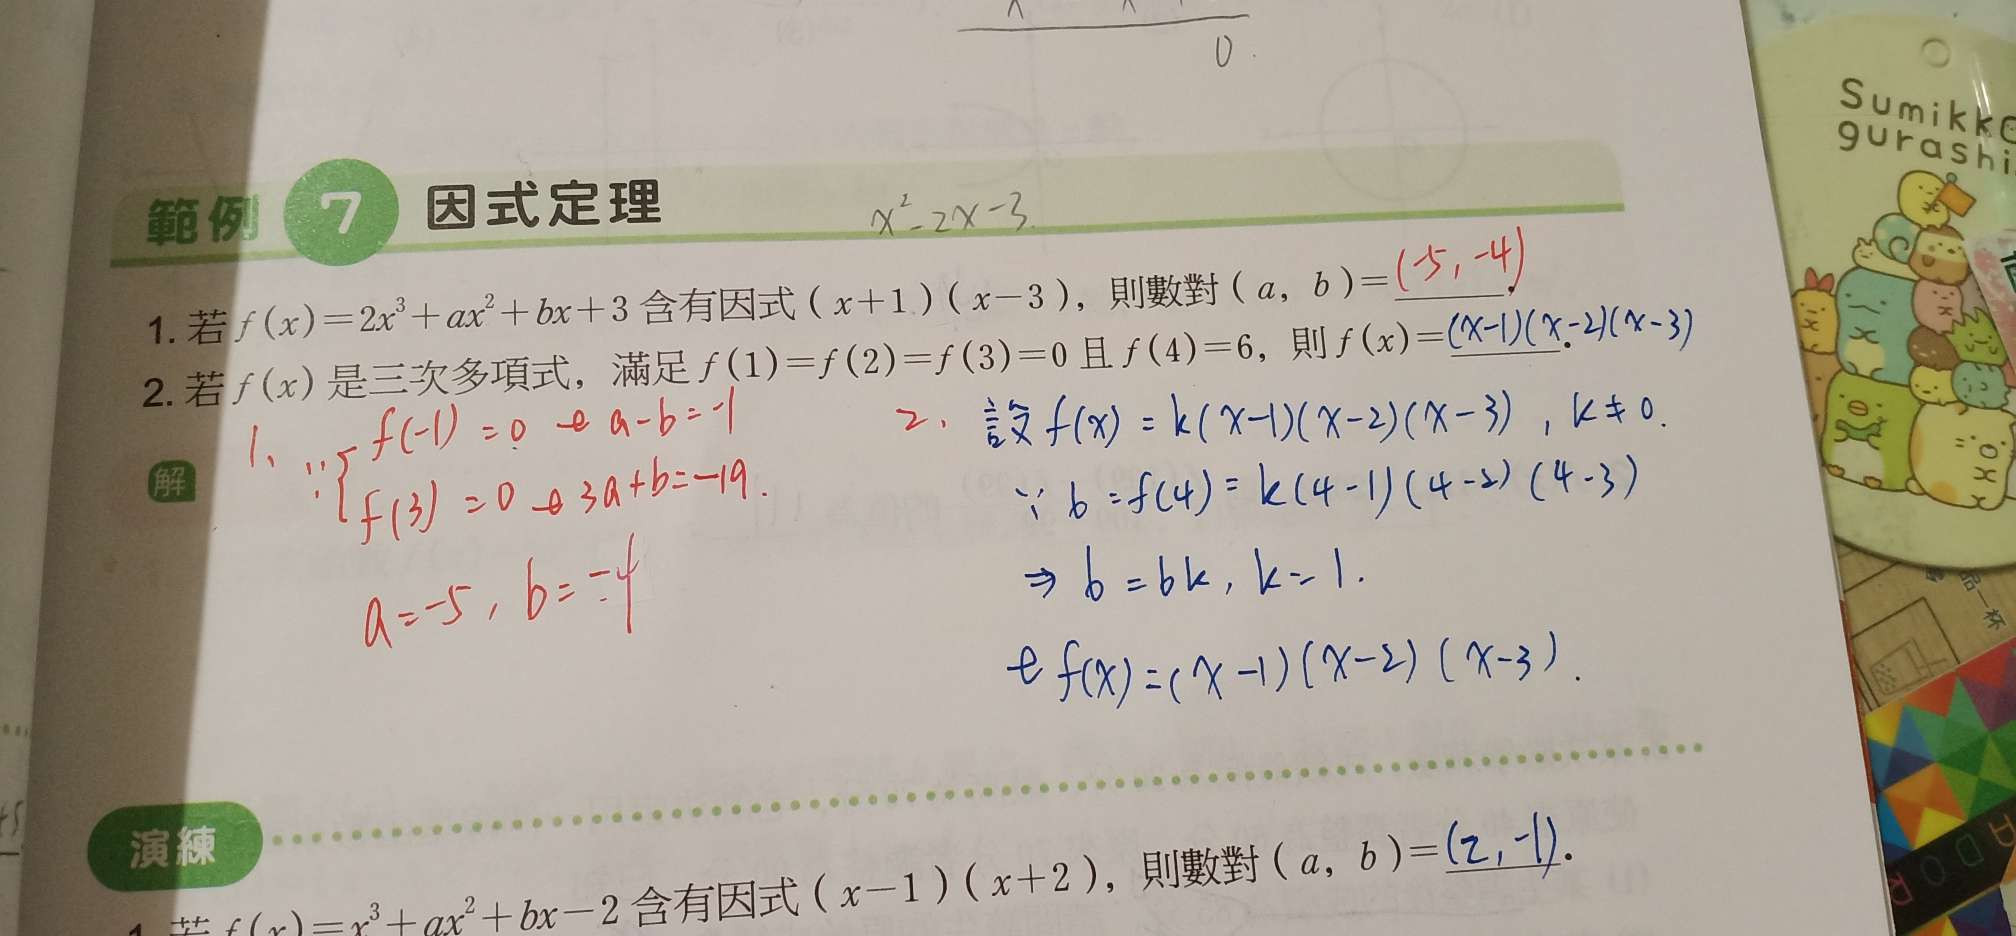 0
Sumikko
gurashi
範例 7 因式定理
x²-2x-3
1. 若 f(x)=2x³+ax²+bx+3 含有因式(x+1)(x-3),則數對(a, b)=(-5,-4).
2. 若 f(x) 是三次多項式,滿足 f(1)=f(2)=f(3)=0 且 f(4)=6,則 f(x)=(x-1)(x-2)(x-3).
解
1. ∵{ f(-1)=0 → a-b=-1
f(3)=0 → 3a+b=-19.
a=-5, b=-4
2. 設 f(x)=k(x-1)(x-2)(x-3), k≠0.
∵ 6=f(4)=k(4-1)(4-2)(4-3)
⇒ 6=6k, k=1.
f(x)=(x-1)(x-2)(x-3).
演練
1. 若 f(x)=x³+ax²+bx-2 含有因式(x-1)(x+2),則數對(a, b)=(2,-1).